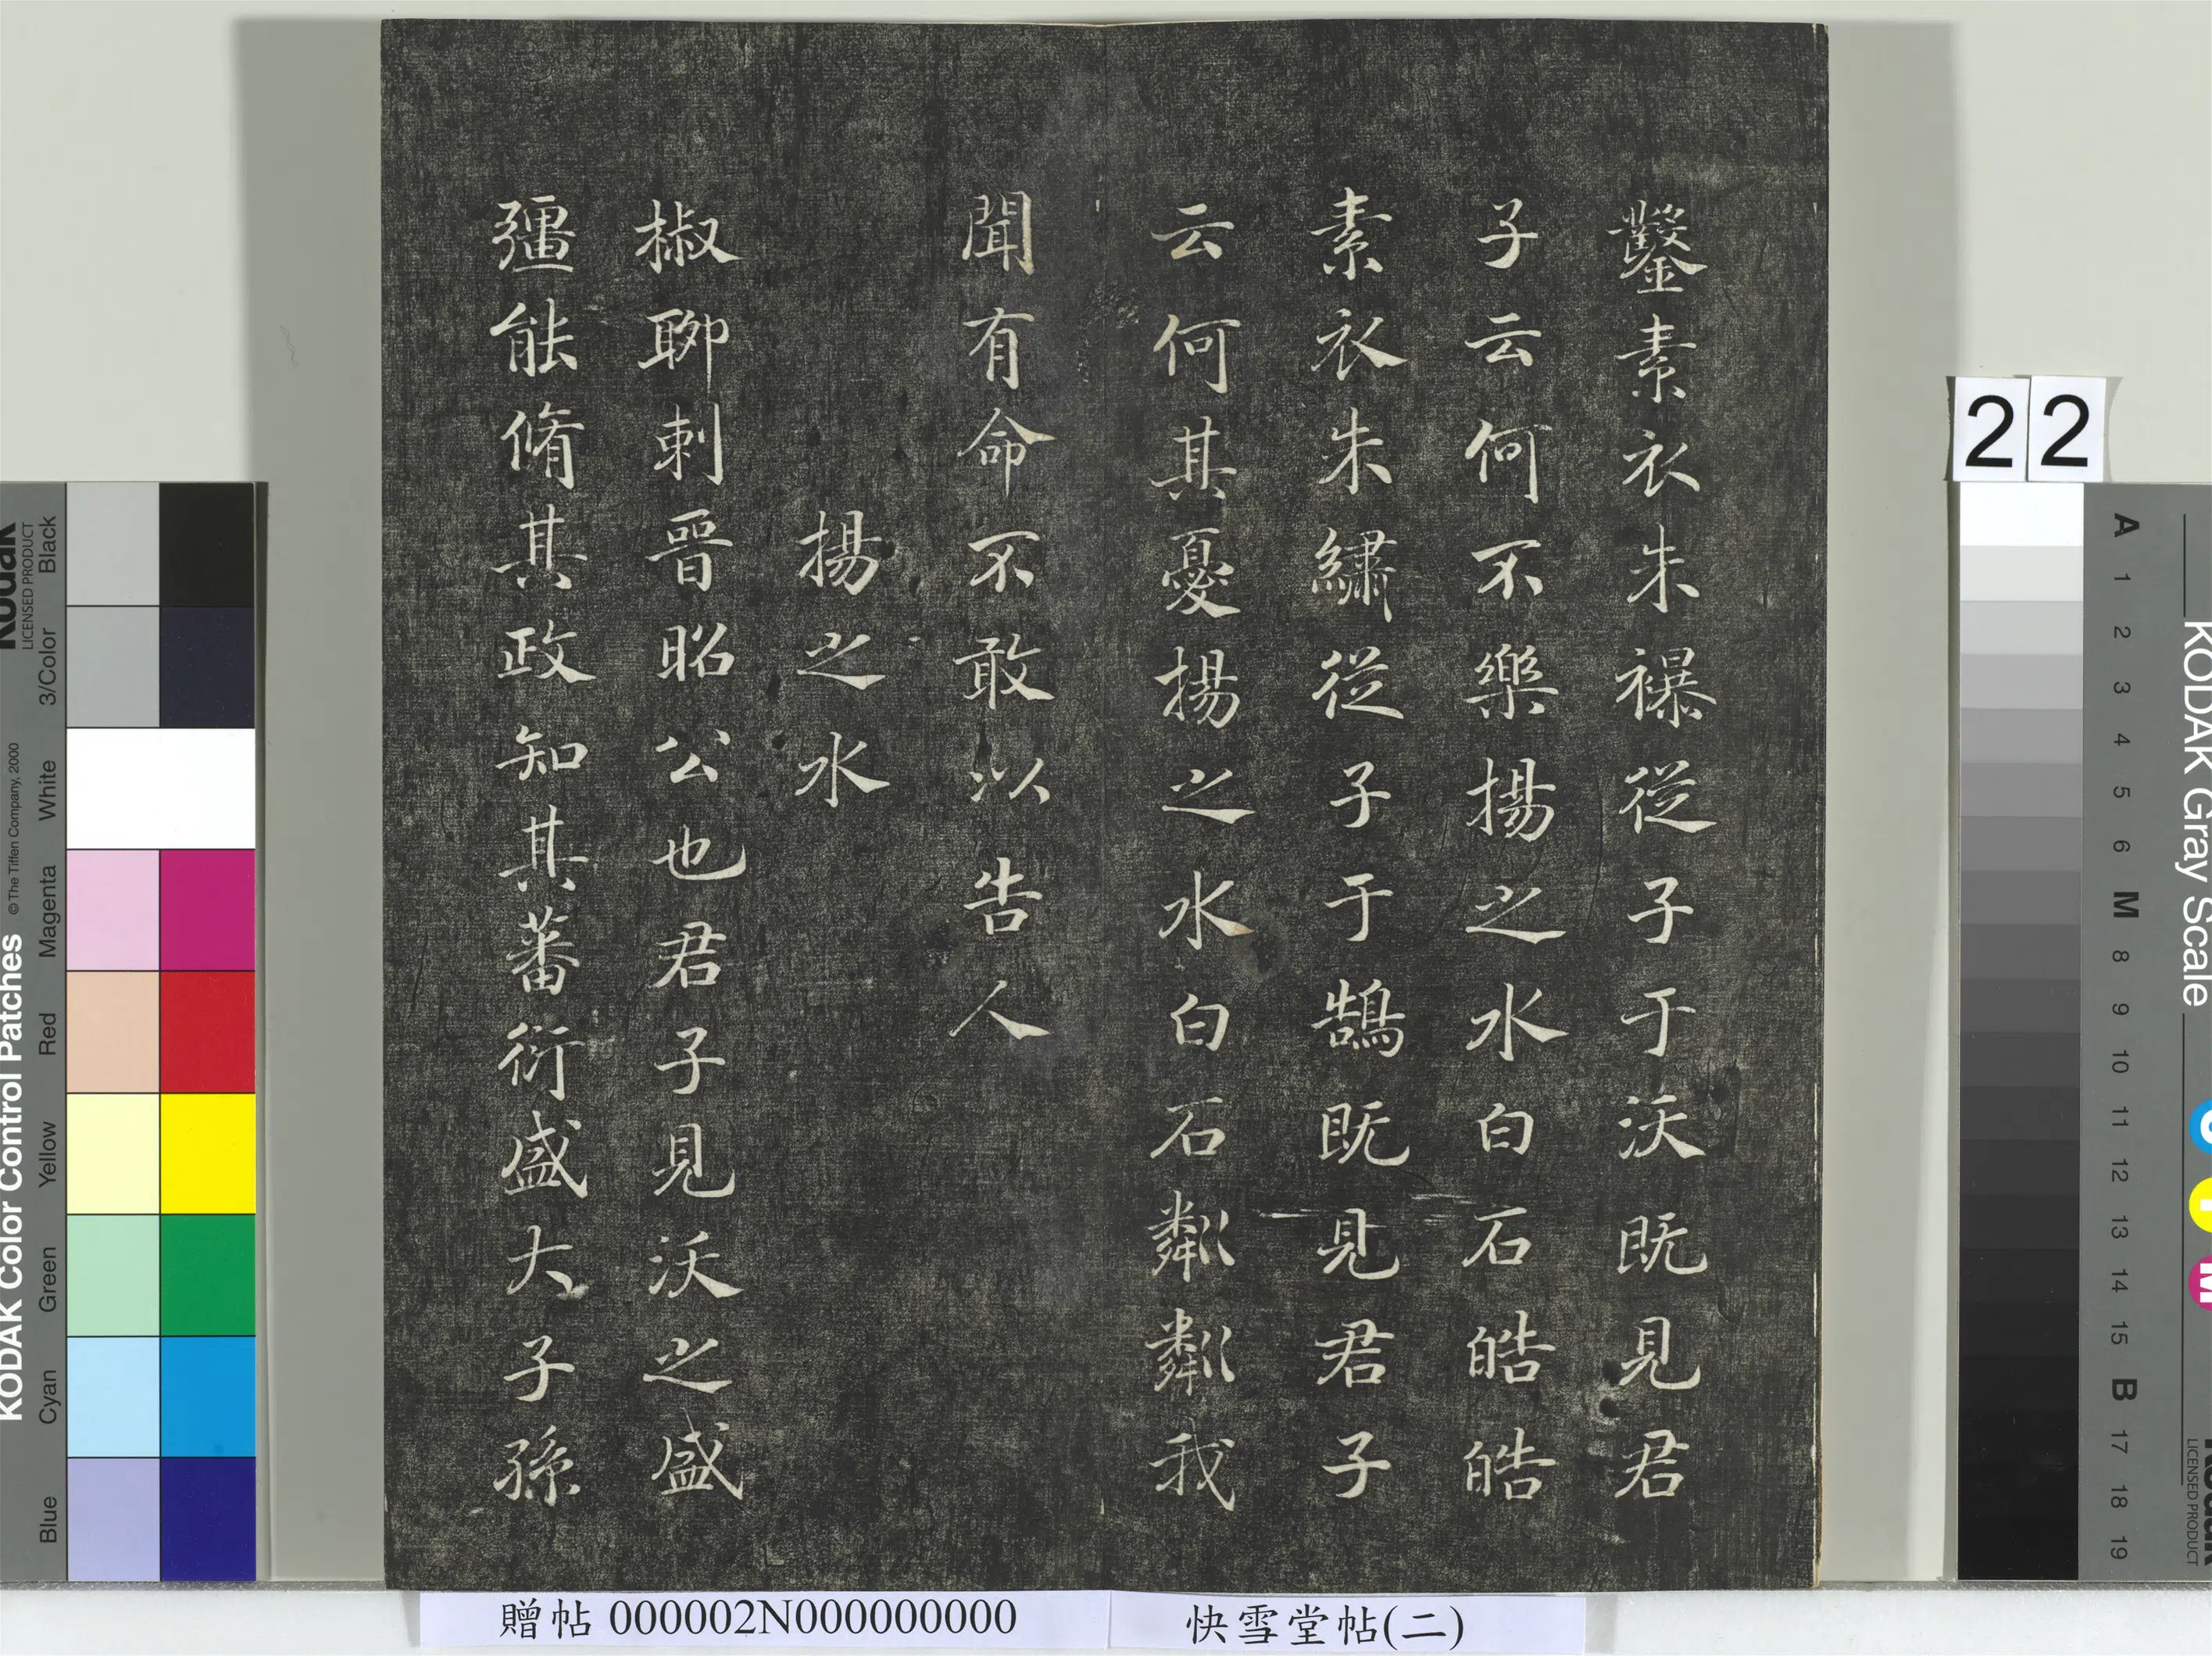 鑿素衣朱襮從子于沃既見君
子云何不樂揚之水白石皓皓
素衣朱繡從子于鵠既見君子
云何其憂揚之水白石粼粼我
聞有命不敢以告人
揚之水
椒聊刺晉昭公也君子見沃之盛
彊能脩其政知其蕃衍盛大子孫
22
KODAK Color Control Patches
© The Tiffen Company, 2000
Kodak
LICENSED PRODUCT
Blue
Cyan
Green
Yellow
Red
Magenta
White
3/Color
Black
KODAK Gray Scale
Kodak
LICENSED PRODUCT
C
Y
M
A 1 2 3 4 5 6 M 8 9 10 11 12 13 14 15 B 17 18 19
贈帖 000002N000000000
快雪堂帖(二)